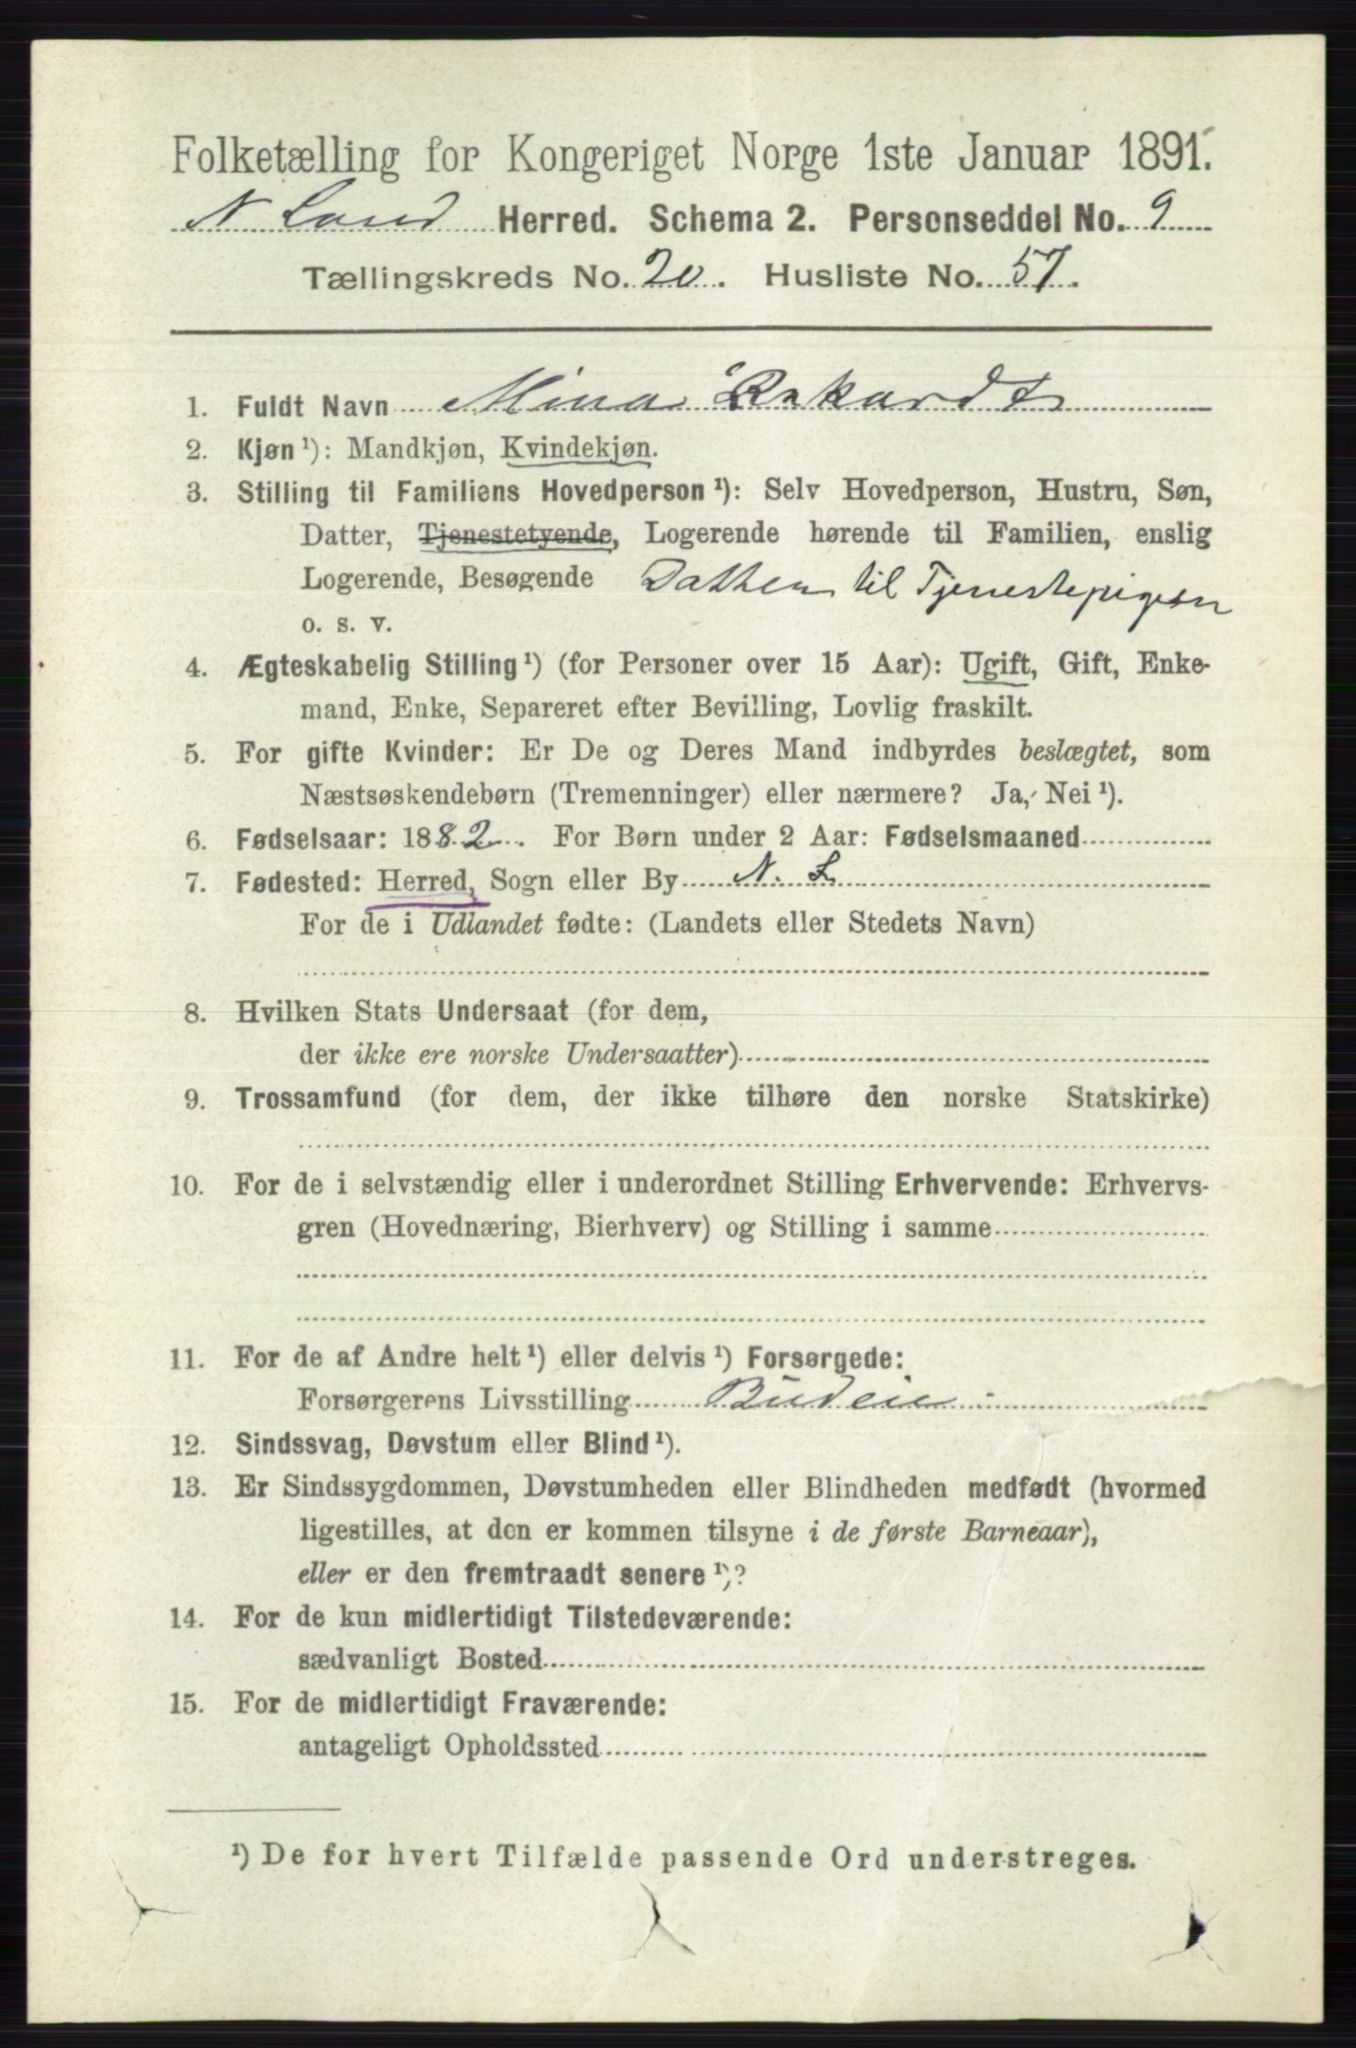 Folketælling for Kongeriget Norge 1ste Januar 1891.
N Land Herred. Schema 2. Personseddel No. 9
Tællingskreds No. 20. Husliste No. 57.
1. Fuldt Navn Mina Rikardts
2. Kjøn ¹): Mandkjøn, Kvindekjøn.
3. Stilling til Familiens Hovedperson ¹): Selv Hovedperson, Hustru, Søn,
Datter, Tjenestetyende, Logerende hørende til Familien, enslig
Logerende, Besøgende Datter til Tjenestepigen
o. s. v.
4. Ægteskabelig Stilling ¹) (for Personer over 15 Aar): Ugift, Gift, Enke-
mand, Enke, Separeret efter Bevilling, Lovlig fraskilt.
5. For gifte Kvinder: Er De og Deres Mand indbyrdes beslægtet, som
Næstsøskendebørn (Tremenninger) eller nærmere? Ja, Nei ¹).
6. Fødselsaar: 1882. For Børn under 2 Aar: Fødselsmaaned
7. Fødested: Herred, Sogn eller By N. L
For de i Udlandet fødte: (Landets eller Stedets Navn)
8. Hvilken Stats Undersaat (for dem,
der ikke ere norske Undersaatter)
9. Trossamfund (for dem, der ikke tilhøre den norske Statskirke)
10. For de i selvstændig eller i underordnet Stilling Erhvervende: Erhvervs-
gren (Hovednæring, Bierhverv) og Stilling i samme
11. For de af Andre helt ¹) eller delvis ¹) Forsørgede:
Forsørgerens Livsstilling Budeie
12. Sindssvag, Døvstum eller Blind ¹).
13. Er Sindssygdommen, Døvstumheden eller Blindheden medfødt (hvormed
ligestilles, at den er kommen tilsyne i de første Barneaar),
eller er den fremtraadt senere ¹)?
14. For de kun midlertidigt Tilstedeværende:
sædvanligt Bosted
15. For de midlertidigt Fraværende:
antageligt Opholdssted
¹) De for hvert Tilfælde passende Ord understreges.